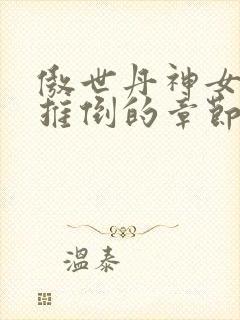 傲世丹神女
推倒的章節
溫泰